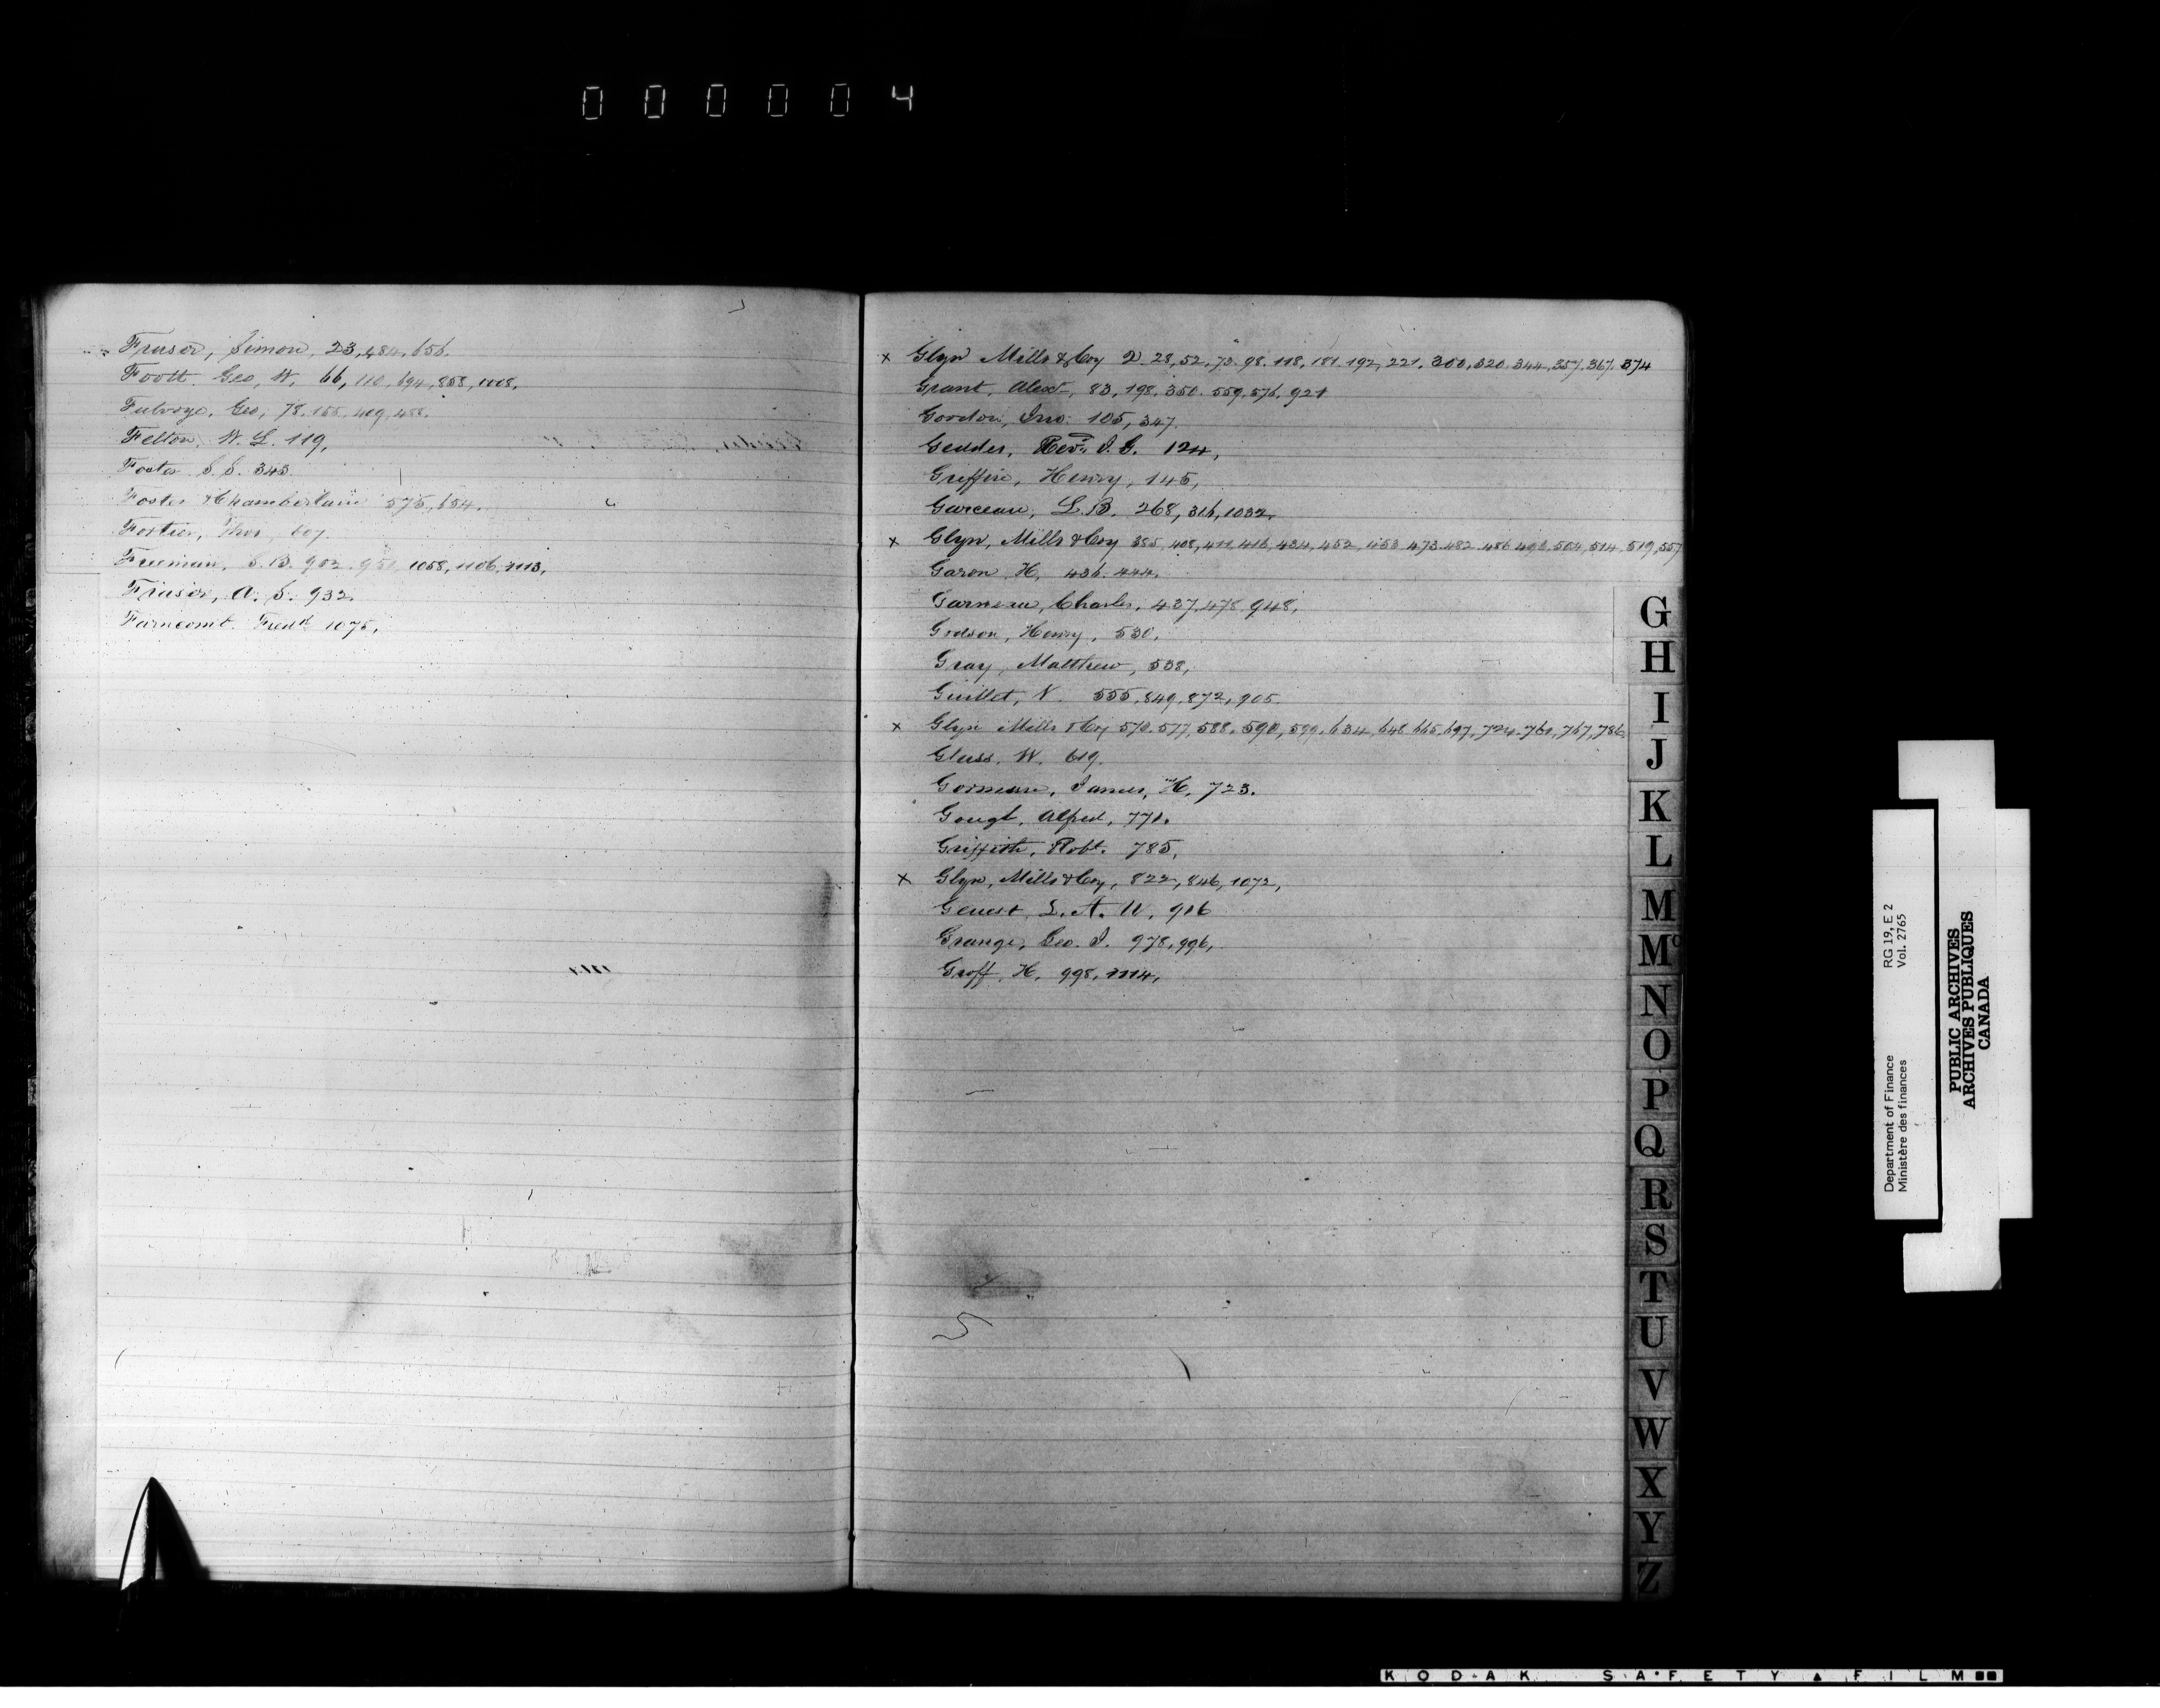 000004
Fraser, Simon, 23, 484, 656.
Foott. Geo, W. 66, 110, 694, 858, 1008,
Fulvoye, Geo, 78. 155. 409. 458.
Felton. W. L. 119,
Foster S. S. 343.
Foster & Chamberlain 575, 654.
Fortier, Thos, 607.
Freeman, S. B. 902. 1058, 1106, 1113,
Fraser, A. S. 932.
Farncomt. Fredk 1075,
x Glyn Mills & Coy 2 28, 52, 73. 98. 118, 181. 192, 221, 300, 320. 344, 357. 367. 374
Grant, Alexr, 83, 198. 350. 559. 576, 921
Gordon, Jno. 105, 347.
Geddes, Revd. J. G. 124,
Griffin, Henry, 145,
Garceau, L. B. 268, 316, 1032,
x Glyn, Mills & Coy 385. 408, 411. 416, 434, 452, 453 473. 482. 486 493. 504, 514. 519, 557
Garon H. 436. 444.
Garneau, Charles, 437. 478. 948,
Godson, Henry, 530.
Gray, Matthew, 538,
Guillet, V. 555, 849, 872, 905.
x Glyn Mills & Coy 570. 577, 588. 590, 599. 634, 648 665. 697. 724. 761, 767, 786.
Glass. W. 619.
Gorman, James, H. 723.
Gough, Alfred, 771.
Griffith, Robt. 785,
x Glyn, Mills & Coy, 822, 846, 1072,
Genest, L. A. W. 916
Grange, Geo. J. 978, 996,
Groff, H. 998, 1114,
G
H
I
J
K
L
M
Mc
N
O
P
Q
R
S
T
U
V
W
X
Y
Z
Department of Finance RG 19, E 2
Ministère des finances Vol. 2765
PUBLIC ARCHIVES
ARCHIVES PUBLIQUES
CANADA
KODAK SAFETY FILM